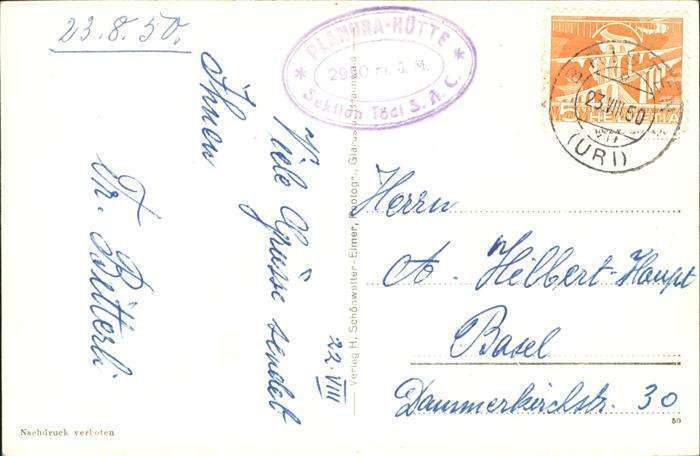 23.8.50.
PLANURA-HÜTTE
2940 m. ü. M.
Sektion Tödi S. A. C.
HELVETIA
23.VIII.50
(URI)
Viele Grüsse sendet
Ihnen
Fr. Bitterli
22.VIII
Verlag H. Schönwetter-Elmer, Photogr., Glarus
Herrn
A. Hilbert-Haupt
Basel
Dammerkirchstr. 30
Nachdruck verboten
50